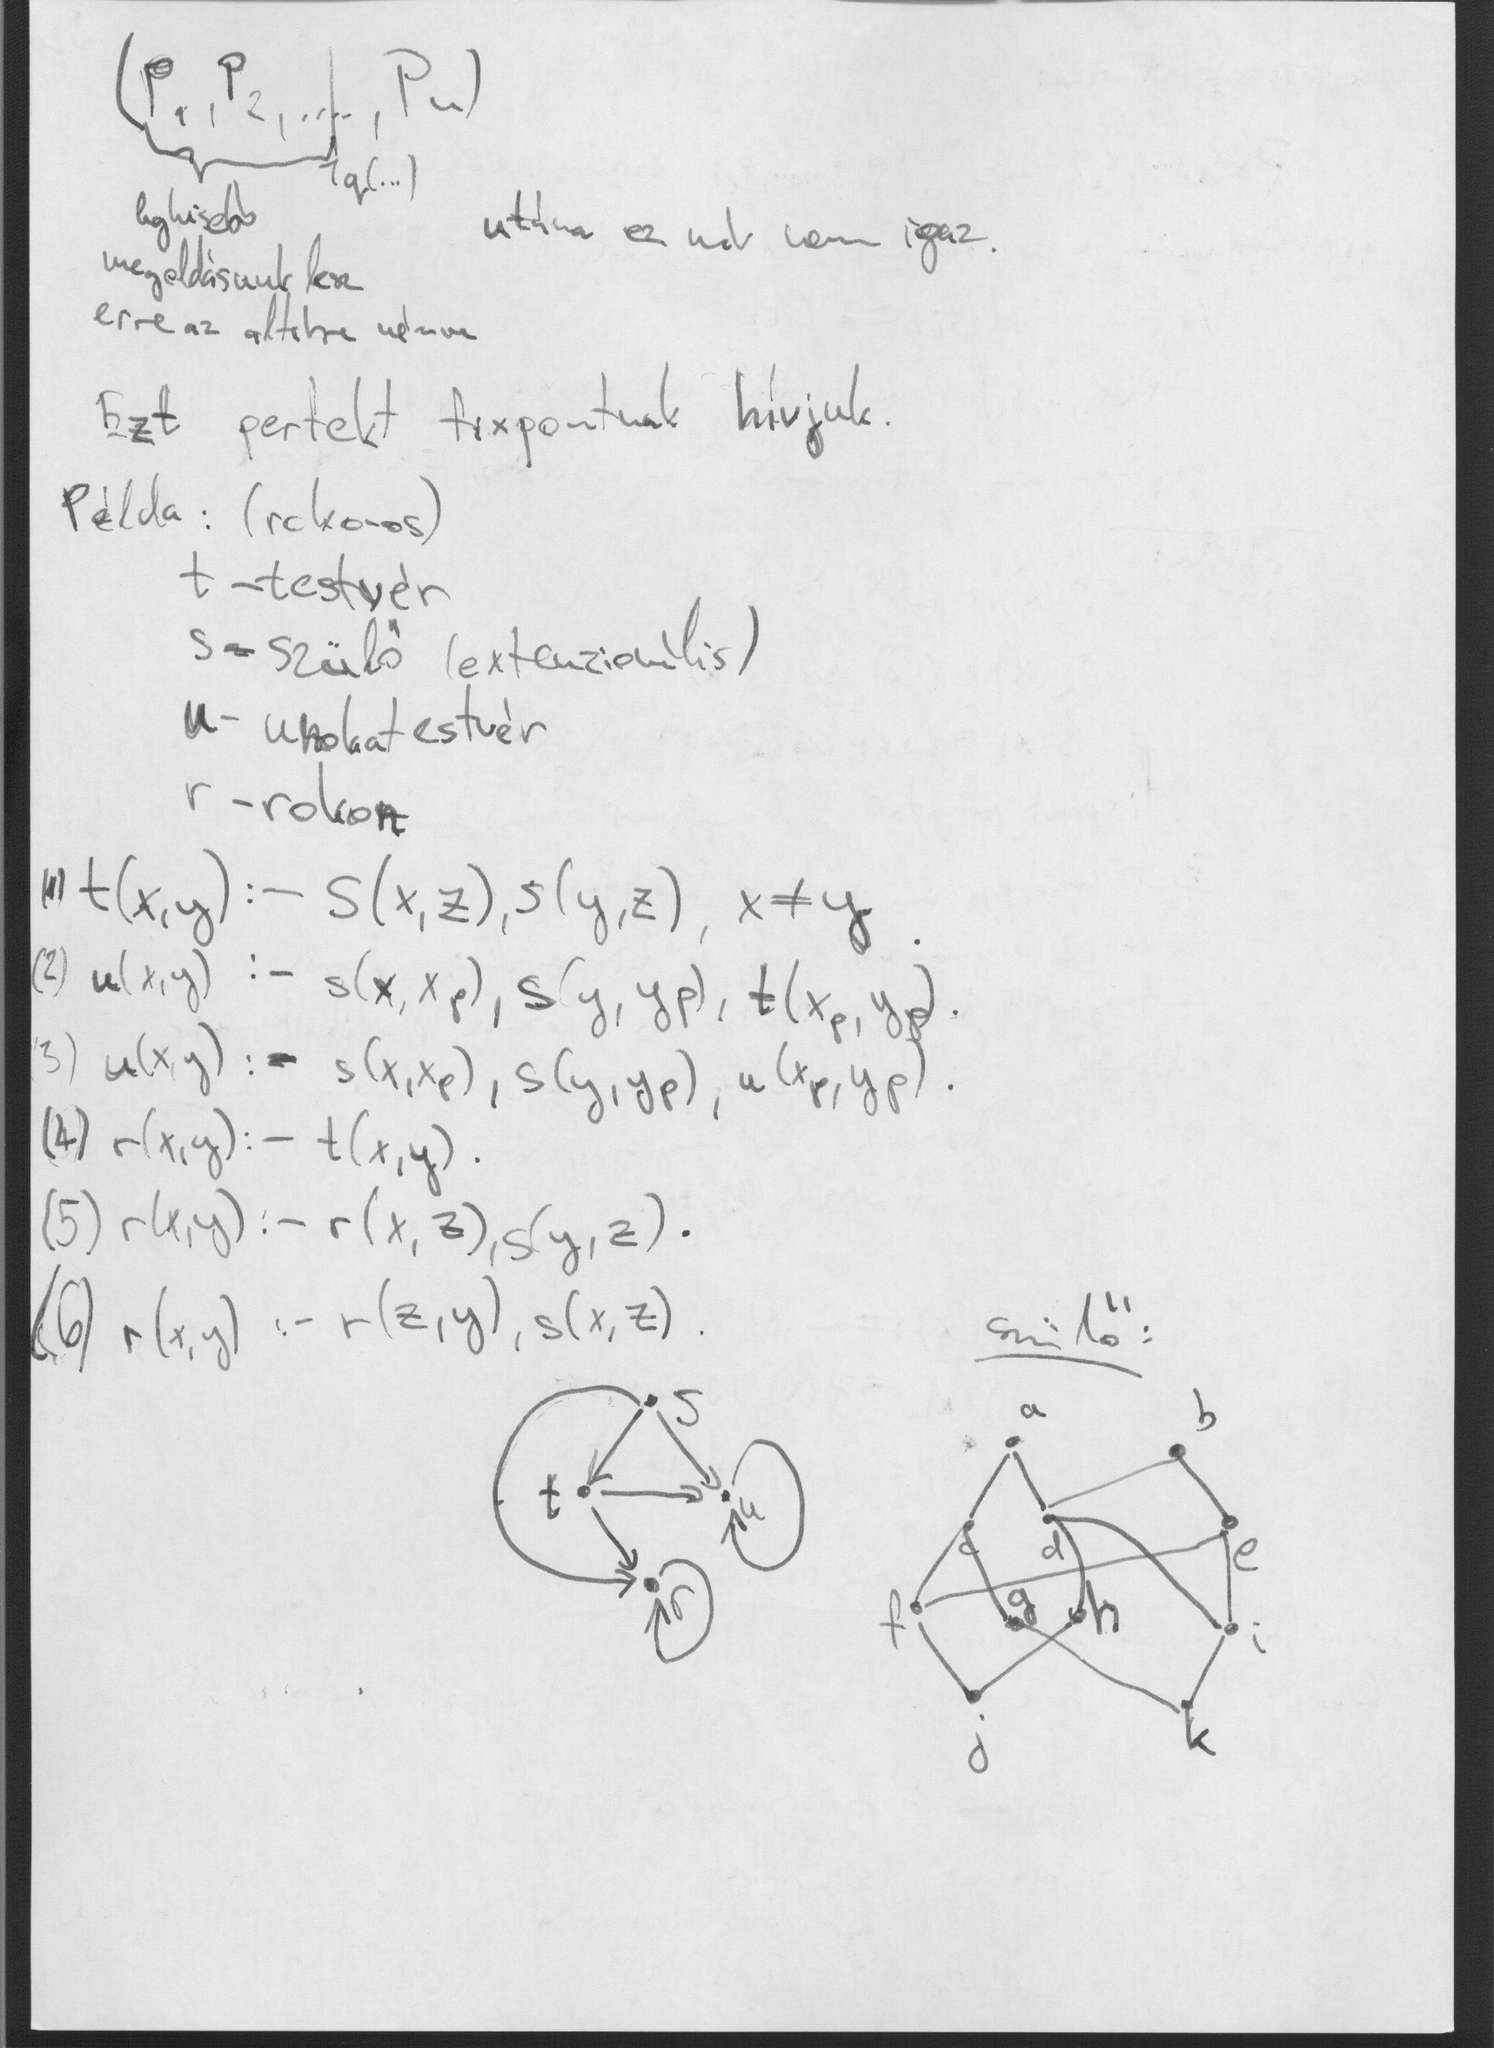 (P₁, P₂, ...., Pₙ)
¬q(...)
legkisebb
megoldásunk lesz
erre az
utána ez már nem igaz.
Ezt perfekt fixpontnak hívjuk.
Példa: (rokonos)
t - testvér
s - szülő (extenzionális)
u - unokatestvér
r - rokon
(1) t(x,y) :- S(x,z), s(y,z), x≠y.
(2) u(x,y) :- s(x,xₚ), s(y,yₚ), t(xₚ,yₚ).
(3) u(x,y) :- s(x,xₚ), s(y,yₚ), u(xₚ,yₚ).
(4) r(x,y) :- t(x,y).
(5) r(x,y) :- r(x,z), s(y,z).
(6) r(x,y) :- r(z,y), s(x,z).
szülő:
S
t u
r
a b
c d e
f g h i
j k